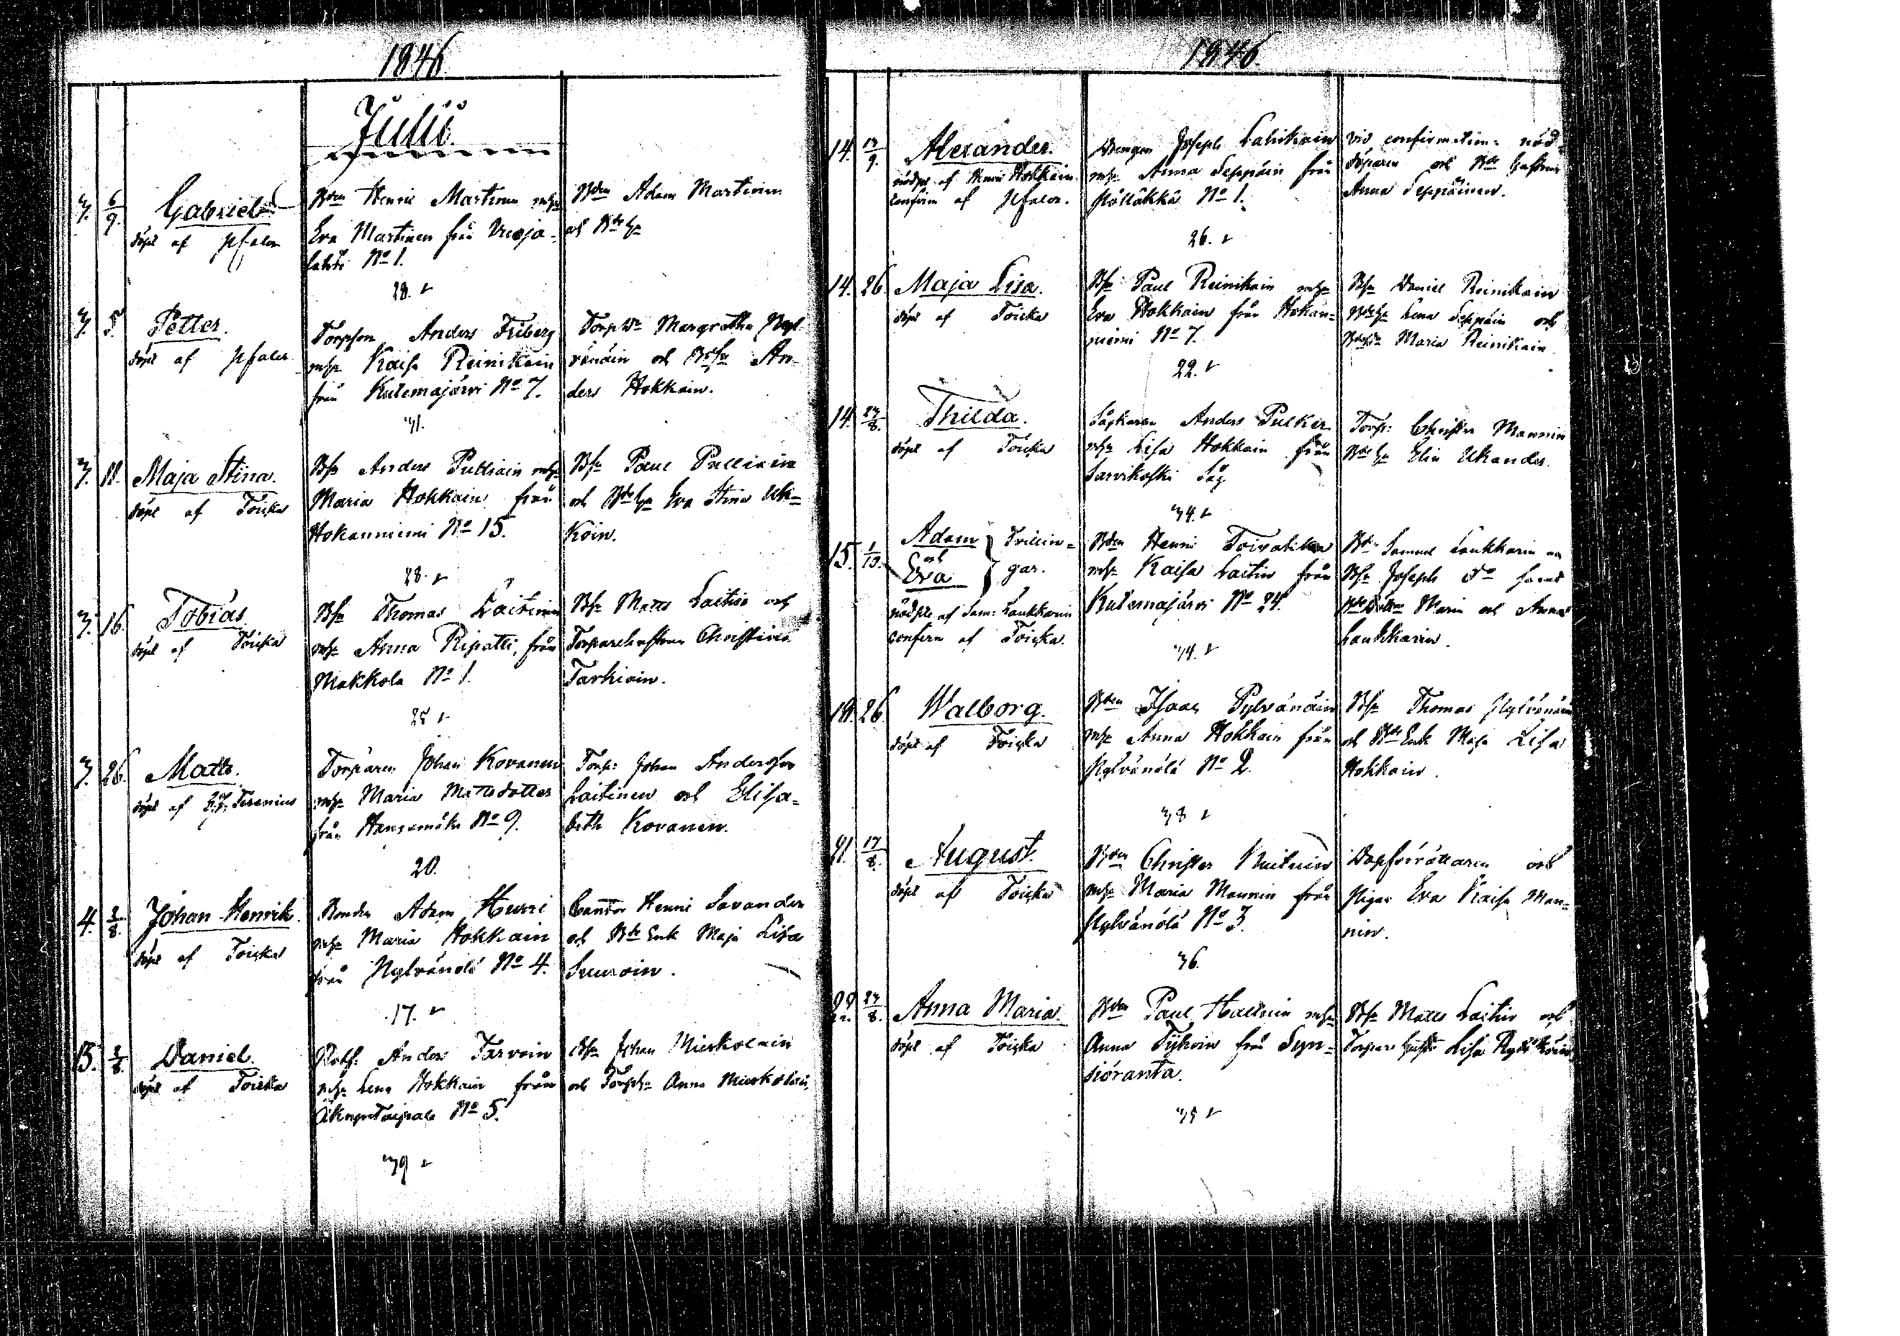 1846
Julii
3. 6/9. Gabriel
döpt af Pfaler
Bden Henric Martinen mhu
Eva Martinen från Vuoja-
lahti No 1.
28.
Bden Adam Martinen
och Bdehu
3. 5. Petter.
döpt af Pfaler
Torpson Anders Friberg
mhu Kaisa Reinikain
från Kulemajärvi No 7.
31.
Torp Margretha Pyl-
vänäin och An-
ders Hokkain.
3. 11. Maja Stina.
döpt af Toiska
Bsn Anders Pulliain mhu
Maria Hokkain från
Hokanniemi No 15.
28.
Bsn Paul Pulliain
och Bdehu Eva Stina Uk-
koin.
3. 16. Tobias
döpt af Toiska
Bsn Thomas Laitinen
mhu Anna Ripatti, från
Makkola No 1.
25
Bsn Matts Laitin och
Torparehustrun Christina
Tarkiain.
3. 26. Matts.
döpt af Terenius
Torparen Johan Kovanen
mhu Maria Mattsdotter
från Hangamäki No 9.
20.
Torp: Johan Andersson
Laitinen och Elisa-
beth Kovanen.
4. 2/8. Johan Henrik.
döpt af Toiska
Bonden Adam Hurri
mhu Maria Hokkain
från Pylvänälä No 4.
17.
Cantor Henric Savander
och Bde Enk Maja Lisa
Suuroin.
13. 2/8. Daniel.
döpt af Toiska
Anders Tarvain
mhu Lena Hokkain från
Taipale No 5.
39
Bsn Johan Mieskolain
och Anna Mieskolain
1846.
14. 13/9. Alexander.
nödpt af Henric Hokkain
confirm af Pfaler.
Drengen Joseph Lahikain
mhu Anna Seppäin från
Pölläkkä No 1.
26.
Vid confirmation: nöd-
döparen och Bde hustru
Anna Seppäinen.
14. 26. Maja Lisa.
döpt af Toiska
Bsn Paul Reinikain mhu
Eva Hokkain från Hokan-
niemi No 7.
22.
Bsn Daniel Reinikain
Bdehu Lena Seppäin och
Maria Reinikain.
14. 23/8. Thilda.
döpt af Toiska
Sågkaren Anders Pulker
mhu Lisa Hokkain från
Sarvikoski Såg.
34.
Torp: Christer Mannin
Bdehu Elin Ukander.
15. 1/10. Adam och Eva } Tvillin-
gar.
nödpte af Sam: Laukkanin
confirm af Toiska.
Bden Henric Toivakka
mhu Kaisa Laitin från
Kulemajärvi No 24.
34.
Bde Samuel Laukkarin
Bsn Joseph Do samt
Maria och Anna
Laukkarin.
18. 26. Walborg.
döpt af Toiska
Bden Isaac Pylvänäin
mhu Anna Hokkain från
Pylvänälä No 2.
38
Bsn Thomas Pylvänäin
och Bde Enk Maja Lisa
Hokkain.
21. 17/8. August.
döpt af Toiska
Bden Christer
mhu Maria Mannin från
Pylvänälä No 3.
36.
Dopförrättaren och
Pigan Eva Kaisa Man-
nin.
22. 23/8. Anna Maria.
döpt af Toiska
Bden Paul mhu
Anna från Syn-
sioranta.
35
Bsn Matts Laitin och
Torpare hustr. Lisa